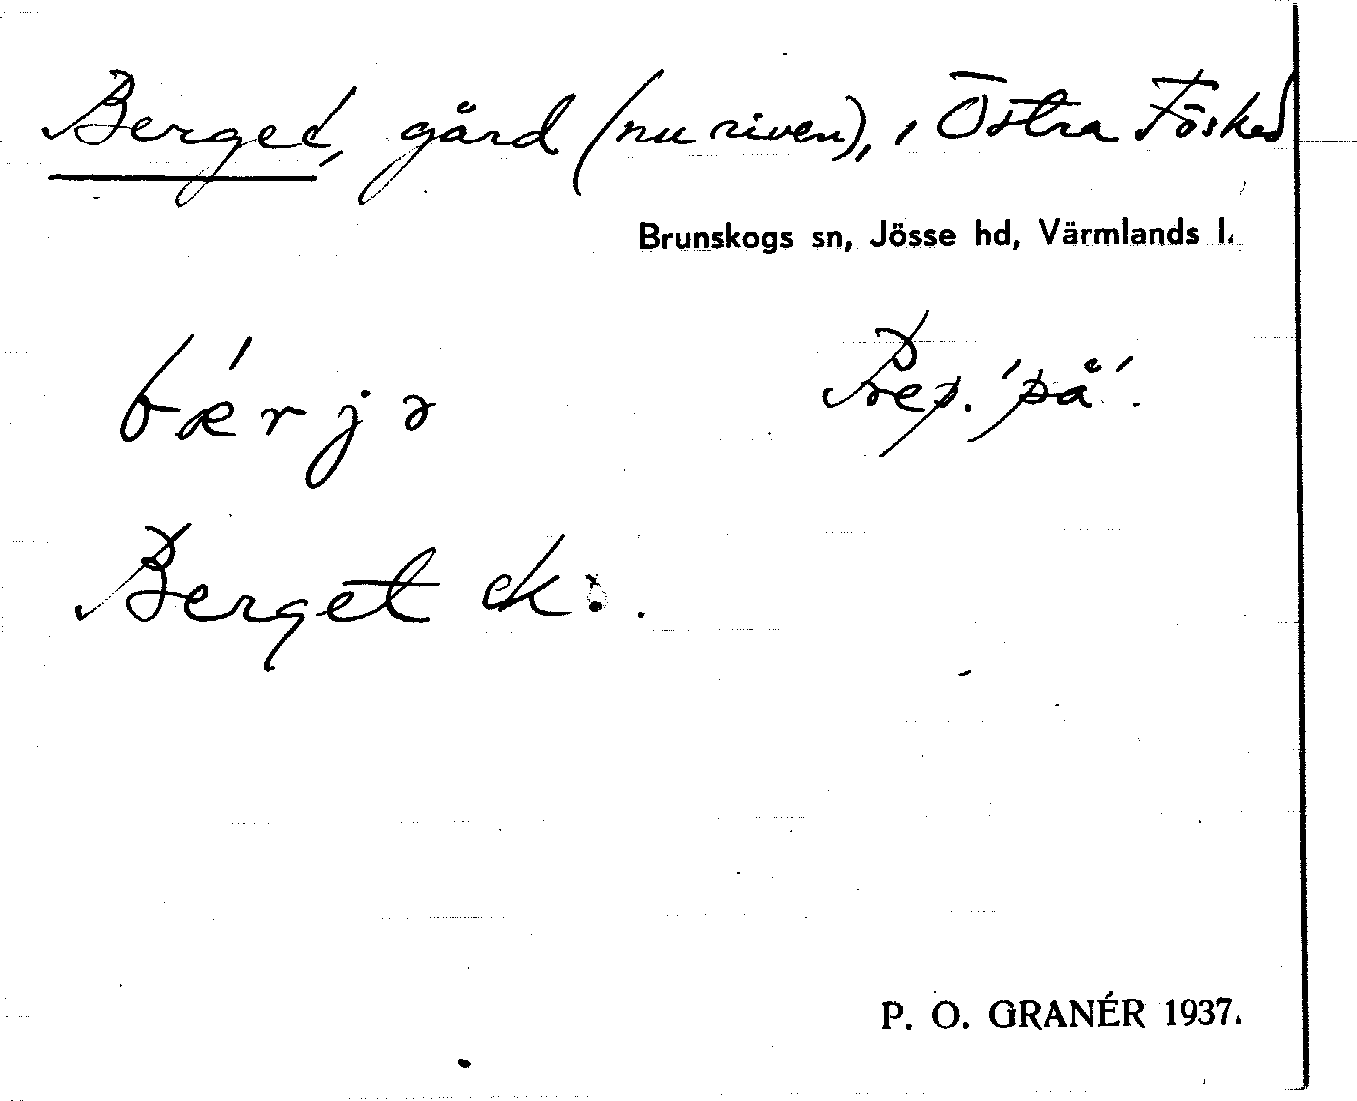 Berget, gård (nu riven), i Östra Fösked
Brunskogs sn, Jösse hd, Värmlands l.
bǽrjə Prep. 'på'.
Berget ek:.
P. O. GRANÉR 1937.